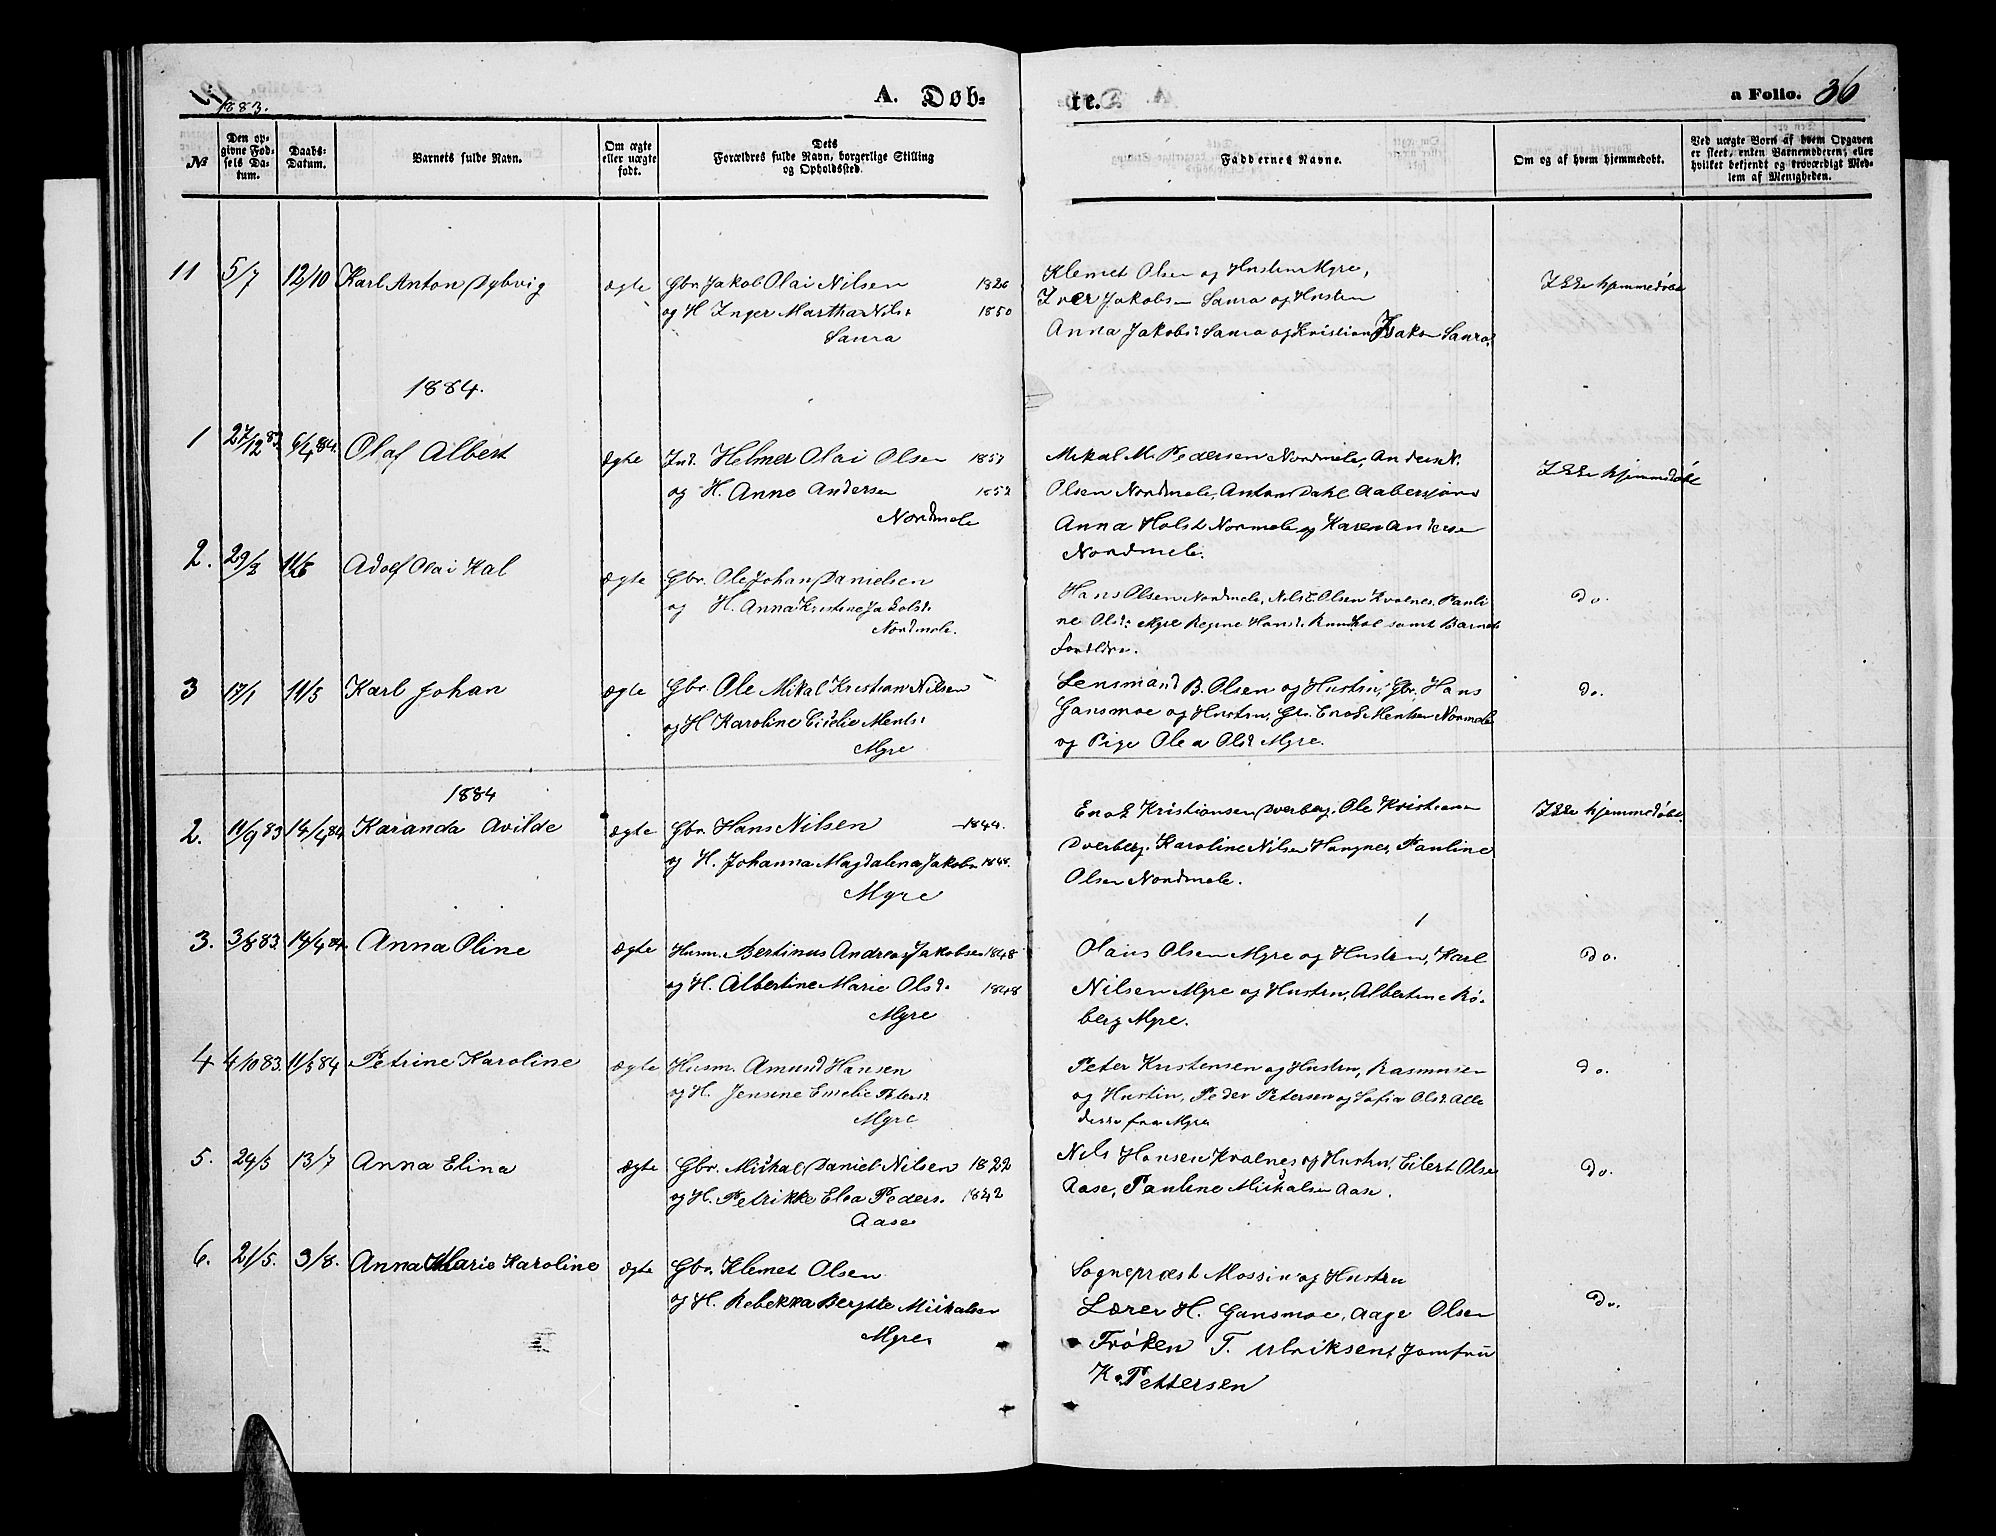 1883.
A. Døb-
te.
a Folio. 36
№
Den op-
givne Fød-
sels Da-
tum.
Daabs-
Datum.
Barnets fulde Navn.
Om ægte
eller uægte
født.
Dets
Forældres fulde Navn, borgerlige Stilling
og Opholdssted.
Faddernes Navne.
Om og af hvem hjemmedøbt.
Ved uægte Børn af hvem Opgaven
er skeet, enten Barnemoderen, eller
hvilket bekjendt og troværdigt Med-
lem af Menigheden.
11 5/7 12/10 Karl Anton Dybvig ægte Gbr. Jakob Olai Nilsen 1826
og H Inger Martha Nilsd 1850
Saura
Klemet Olsen og Hustru Myre,
Iver Jakobsen Saura og Hustru
Anna Jakobsd Saura og Kristian Isaks. Saura.
Ikke hjemmedøbt
1884.
1 27/12 83 6/4 84. Olaf Albert ægte Ind. Helmer Olai Olsen 1857
og H. Anne Andersen 1852
Nordmele
Mikal M. Pedersen Nordmele, Anders N.
Olsen Nordmele, Anton Dahl Aabersjorn
Anna Holst Normele og Karen Andersen
Nordmele.
Ikke hjemmedøbt
2. 29/3 11/5 Adolf Olai Kal ægte Gbr. Ole Johan Danielsen
og H. Anna Kristine Jakobsd.
Nordmele.
Hans Olsen Nordmele, Nils E. Olsen Kvalnes, Pauli
ne Olsd. Myre Regine Hansd. samt Barnets
Foreldre.
do.
3 17/1 11/5 Karl Johan ægte Gbr. Ole Mikal Kristian Nilsen
og H Karoline Cicilie Mentsd
Myre
Lensmand B. Olsen og Hustru, Gbr. Hans
Gansmoe og Hustru, Gbr. Enok Mentsen Normele
og Pige Olea Olsd Myre.
do.
1884
2. 11/9 83 14/4 84 Karanda Avilde ægte Gbr. Hans Nilsen 1844.
og H. Johanna Magdalena Jakobsn 1848.
Myre
Enok Kristiansen Dverberg, Ole Kristiansen
Dverberg. Karoline Nilsen Haugnes, Pauline
Olsen Nordmele.
Ikke hjemmedøbt.
3. 3/8 83. 14/4 84. Anna Oline ægte Husm. Bertinus Andreas Jakobsen 1848
og H. Albertine Marie Olsd. 1848
Myre
Olaus Olsen Myre og Hustru, Karl
Nilsen Myre og Hustru, Albertine Rø-
berg Myre.
do.
4 4/10 83. 11/5 84 Petrine Karoline ægte Husm. Amund Hansen
og H. Jensine Emelie Petersd
Myre
Peter Kristensen og Hustru, Rasmusen
og Hustru, Peder Petersen og Sofie Olsd. Alle
disse fra Myre
do.
5. 24/5 13/7 Anna Elina ægte Gbr. Mikhal Daniel Nilsen 1822
og H. Petrikke Elea Peders. 1842
Aase
Nils Hansen Kvalnes og Hustru, Eilert Olsen
Aase, Pauline Mickalsen Aase.
do.
6. 21/5. 3/8. Anna Marie Karoline ægte Gbr. Klemet Olsen
og H. Rebekka Bergitte Mikalsen
Myre
Sogneprest Mossin og Hustru
Lærer H. Gansmoe, Aage Olsen
Frøken T. Ulriksen, Jomfru
K. Pettersen
do.